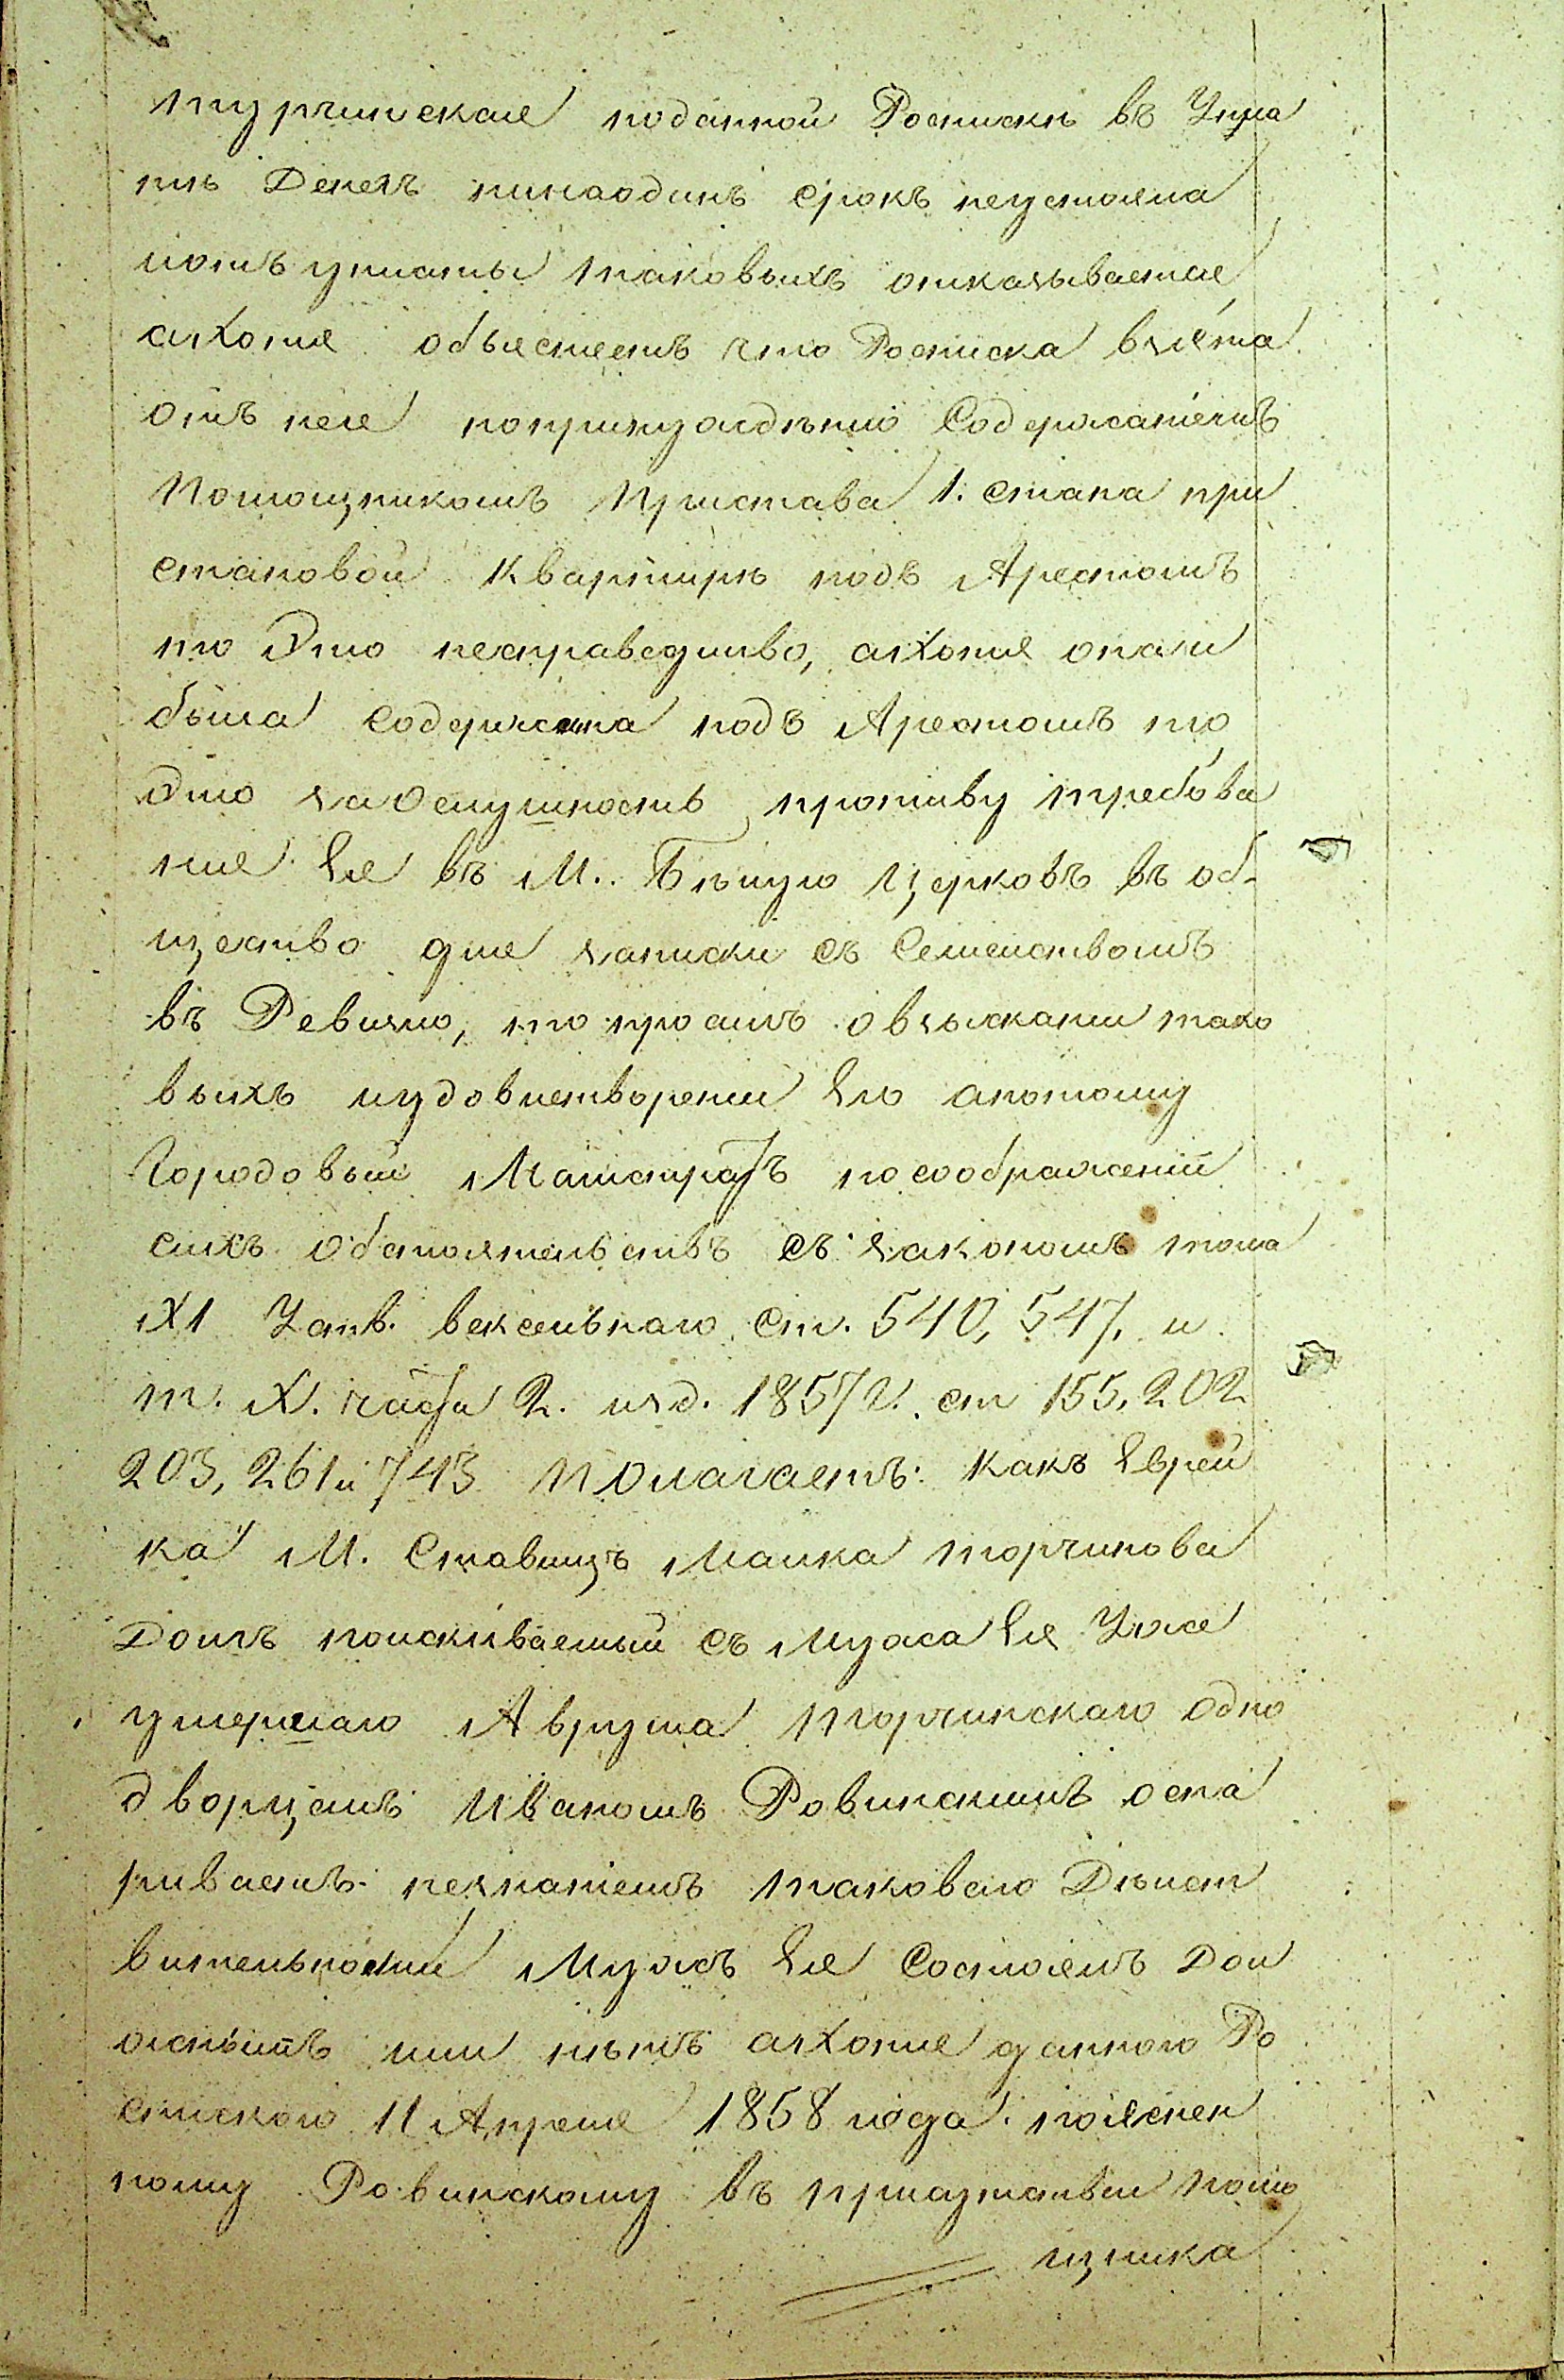 Турчинская поданной Росписки въ Упла
ты Денегъ нинаодинъ срокъ неустояла
иотъ уплаты таковыхъ отказывается
ахотя объясняетъ что Росписка взята
отъ нее попринуждѣнію Содержатемъ
Помощникомъ Пристава 1. Стана при
становой Квартирѣ подъ Арестомъ
то Это несправедливо, ахотя онали
была Содержана подъ Арестомъ то
Это заОслушность противу требова
ние Ея въ М. Бѣлую Церковъ въ об-
щество для записки съ Семействомъ
въ Ревизію, то проситъ овзыскании тако
выхъ иудовлетворении Его апотому
Городовый Магистратъ посоображеніи
сихъ обстоятельствъ съ закономъ тома
XI Устав. вексельнаго Ст. 540, 547, и
т. X. части 2. изд. 1857 г. ст 155, 202
203, 261 и 743 Полагаетъ: какъ Еврей
ка М. Ставищъ Малка Торчинова
Долгъ поискиваемый съ Мужа Ея Уже
умершаго Аврума Торчинскаго Одно
дворцемъ Иваномъ Ровинскимъ оспа
риваетъ незнатемъ таковаго Дѣйст
вительности Мужъ Ея Состоялъ Дол
жнымъ или нѣтъ ахотя данного Ро
спискою 11 Апреля 1858 года поясне
ному Ровинскому въ присутствіи помо
щника